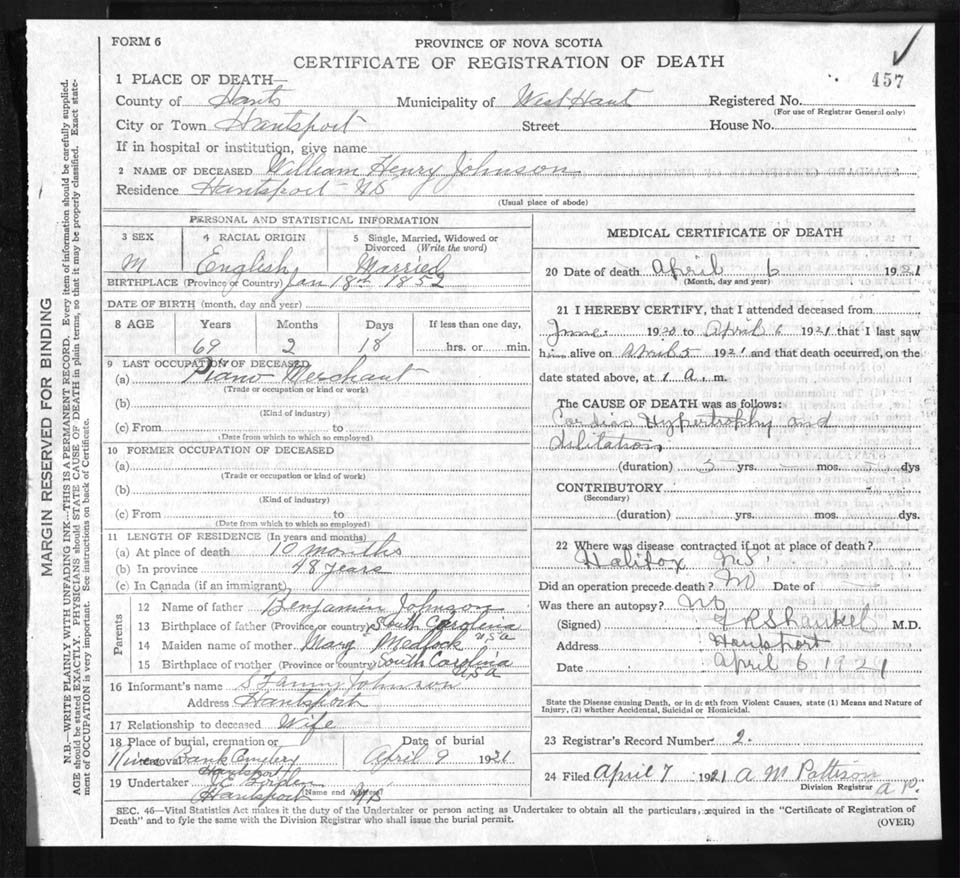 FORM 6
PROVINCE OF NOVA SCOTIA
CERTIFICATE OF REGISTRATION OF DEATH
457
1 PLACE OF DEATH—
County of Hants Municipality of West Hant Registered No.
(For use of Registrar General only)
City or Town Hantsport Street House No.
If in hospital or institution, give name
2 NAME OF DECEASED William Henry Johnson
Residence Hantsport - NS
(Usual place of abode)
MARGIN RESERVED FOR BINDING
N.B.—WRITE PLAINLY WITH UNFADING INK—THIS IS A PERMANENT RECORD. Every item of information should be carefully supplied.
AGE should be stated EXACTLY. PHYSICIANS should STATE CAUSE OF DEATH in plain terms, so that it may be properly classified. Exact state-
ment of OCCUPATION is very important. See instructions on back of Certificate.
PERSONAL AND STATISTICAL INFORMATION
3 SEX 4 RACIAL ORIGIN 5 Single, Married, Widowed or
Divorced (Write the word)
M English Married
BIRTHPLACE (Province or Country) Jan 18th 1852
DATE OF BIRTH (month, day and year)
8 AGE Years Months Days If less than one day,
69 2 18 hrs. or min.
9 LAST OCCUPATION OF DECEASED
(a) Piano Merchant
(Trade or occupation or kind or work)
(b)
(Kind of industry)
(c) From to
(Date from which to which so employed)
10 FORMER OCCUPATION OF DECEASED
(a)
(Trade or occupation or kind of work)
(b)
(Kind of industry)
(c) From to
(Date from which to which so employed)
11 LENGTH OF RESIDENCE (In years and months)
(a) At place of death 10 months
(b) In province 48 years
(c) In Canada (if an immigrant)
Parents
12 Name of father Benjamin Johnson
13 Birthplace of father (Province or country) South Carolina USA
14 Maiden name of mother Mary Medlock
15 Birthplace of mother (Province or country) South Carolina USA
16 Informant's name S Fanny Johnson
Address Hantsport
17 Relationship to deceased Wife
18 Place of burial, cremation or removal Date of burial
River Bank Cemetery Hantsport April 9 1921
19 Undertaker J E Borden
Hantsport NS (Name and Address)
MEDICAL CERTIFICATE OF DEATH
20 Date of death April 6 1921
(Month, day and year)
21 I HEREBY CERTIFY, that I attended deceased from
June 1920 to April 6 1921 that I last saw
him alive on April 5 1921 and that death occurred, on the
date stated above, at 1 a. m.
The CAUSE OF DEATH was as follows:
Cardiac Hypertrophy and
dilitation
(duration) 3 yrs. mos. dys
CONTRIBUTORY
(Secondary)
(duration) yrs. mos. dys.
22 Where was disease contracted if not at place of death?
Halifax N.S.
Did an operation precede death? No Date of
Was there an autopsy? No
(Signed) F R Shankel M.D.
Address Hantsport
Date April 6 1921
State the Disease causing Death, or in death from Violent Causes, state (1) Means and Nature of
Injury, (2) whether Accidental, Suicidal or Homicidal.
23 Registrar's Record Number 2.
24 Filed April 7 1921 A M Pattison
Division Registrar
SEC. 46—Vital Statistics Act makes it the duty of the Undertaker or person acting as Undertaker to obtain all the particulars, required in the "Certificate of Registration of
Death" and to fyle the same with the Division Registrar who shall issue the burial permit.
(OVER)